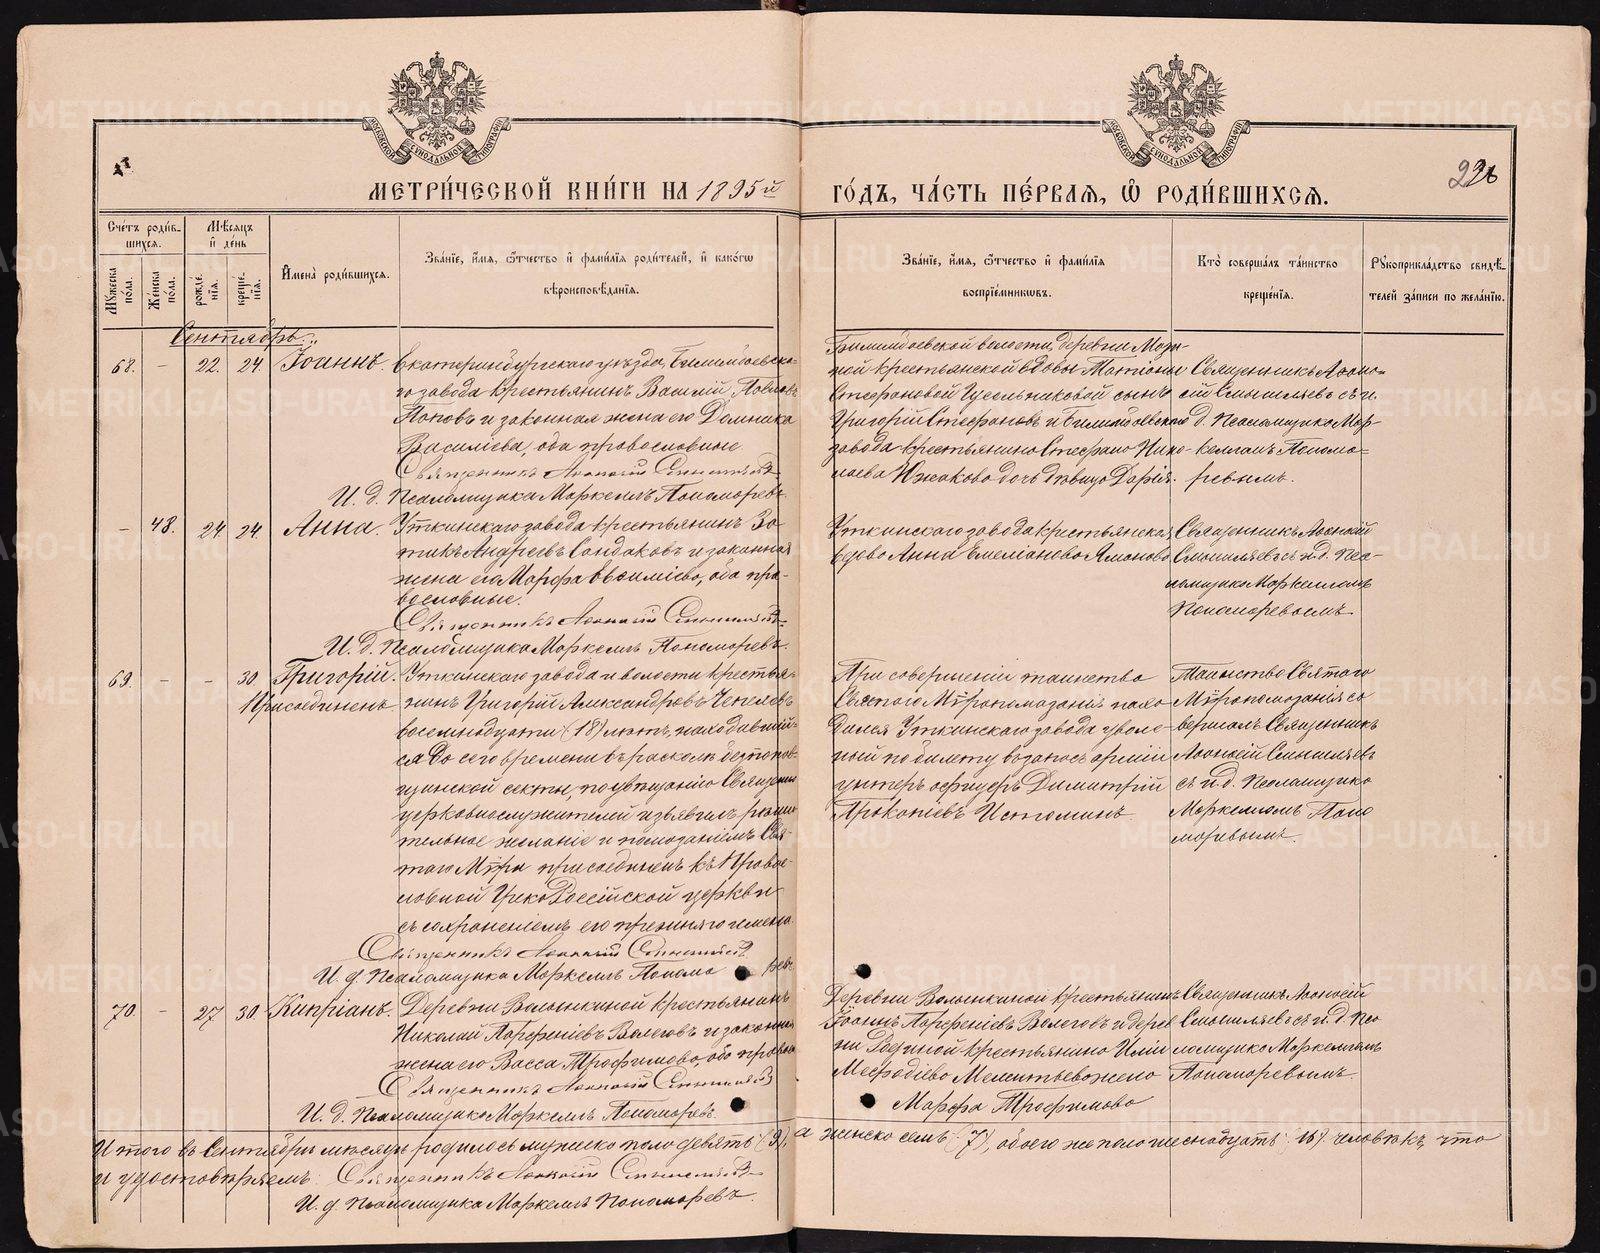 МЕТРИ́ЧЕСКОЙ КНИ́ГИ НА 1895й ГО́ДЪ, ЧА́СТЬ ПЕ́РВАЯ, Ѡ РОДИ́ВШИХСЯ.
МОСКОВСКОЙ СѴНОДАЛЬНОЙ ТИПОГРАФІИ
МОСКОВСКОЙ СѴНОДАЛЬНОЙ ТИПОГРАФІИ
Сче́тъ роди́вшихся.
Му́жеска по́ла.
Же́нска по́ла.
Мѣ́сяцъ и҆ де́нь
рожде́нїя.
креще́нїя.
И҆мена̀ роди́вшихся.
Зва́нїе, и҆́мя, ѻ҆́тчество и҆ фами́лїя роди́телей, и҆ како́гѡ
вѣроисповѣ́данїя.
Зва́нїе, и҆́мя, ѻ҆́тчество и҆ фами́лїя
воспрїе́мникѡвъ.
Кто̀ соверша́лъ та́инство
креще́нїя.
Рꙋкоприкла́дство свидѣ́
телей за́писи по жела́нїю.
Сентябрь.
68. - 22. 24. Іоаннъ.
Екатеринбургскаго уѣзда, Билимбаевска-
го завода крестьянинъ Василій Павловъ
Поповъ и законная жена его Домника
Василіева, оба православные
Священникъ Афонасій Смышляевъ
И. д. Псаломщика Маркеллъ Пономаревъ.
Билимбаевской волости, деревни
ной крестьянской вдовы Матроны
Стефановой сынъ
Григорій Стефановъ и Билимбаевскаго
завода крестьянина Стефана Нико-
лаева Южакова дочь дѣвица Дарія.
Священникъ Афона-
сій Смышляевъ съ и.
д. Псаломщика Мар-
келломъ Понома-
ревымъ.
- 48. 24 24. Анна.
Уткинскаго завода крестьянин Зо-
тикъ Андреевъ Сандаковъ и законная
жена его Марфа Евѳиміева, оба пра-
вославные.
Священникъ Афонасій Смышляевъ
И. д. Псаломщика Маркеллъ Пономаревъ.
Уткинскаго завода крестьянская
вдова Анна Емеліанова
Священникъ Афонасій
Смышляевъ съ и. д. Пса-
ломщика Маркелломъ
Пономаревымъ
69. - - 30 Григорій.
Присоединенъ
Уткинскаго завода и волости крестья-
нинъ Григорій Александровъ
восемнадцати (18) лѣтъ, находившій-
ся до сего времени въ расколѣ безпопов-
щинской секты, по убѣжденію Священно
церковнослужителей изъявилъ рѣши-
тельное желаніе и помазаніемъ Свя-
таго Мѵра присоединенъ къ Право-
славной Греко Россійской церкви
съ сохраненіемъ его прежняго имени.
Священникъ Афонасій Смышляевъ
И. д. Псаломщика Маркеллъ Пономаревъ
При совершеніи таинства
Святаго Мѵропомазанія нахо-
дился Уткинскаго завода уволе-
ный по билету въ запасъ арміи
унтеръ офицеръ Димитрій
Прокопіевъ Истоминъ
Таинство Святаго
Мѵропомазанія со
вершалъ Священникъ
Афонасій Смышляевъ
съ и. д. Псаломщика
Маркелломъ Поно
маревымъ.
70. - 27 30. Кипріанъ.
Деревни Волынкиной крестьянинъ
Николай Парфеніевъ Волеговъ и законная
жена его Васса Трофимова, оба православ
Священникъ Афонасій Смышляевъ
И. д. Псаломщика Маркеллъ Пономаревъ.
Деревни Волынкиной крестьянинъ
Іоаннъ Парфеніевъ Волеговъ и дерев
ни крестьянина Иліи
Мефодіева Мелентьева жена
Марфа Трофимова
Священникъ Афонасій
Смышляевъ съ и. д. Пса
ломщика Маркелломъ
Пономаревымъ.
Итого въ Сентябрѣ мѣсяцѣ родилось мужеска пола девять (9), а женска семь (7), обоего же пола шеснадцать (16) человѣкъ, что
и удостовѣряемъ: Священникъ Афонасій Смышляевъ
И. д. Псаломщика Маркеллъ Пономаревъ.
METRIKI.GASO-URAL.RU